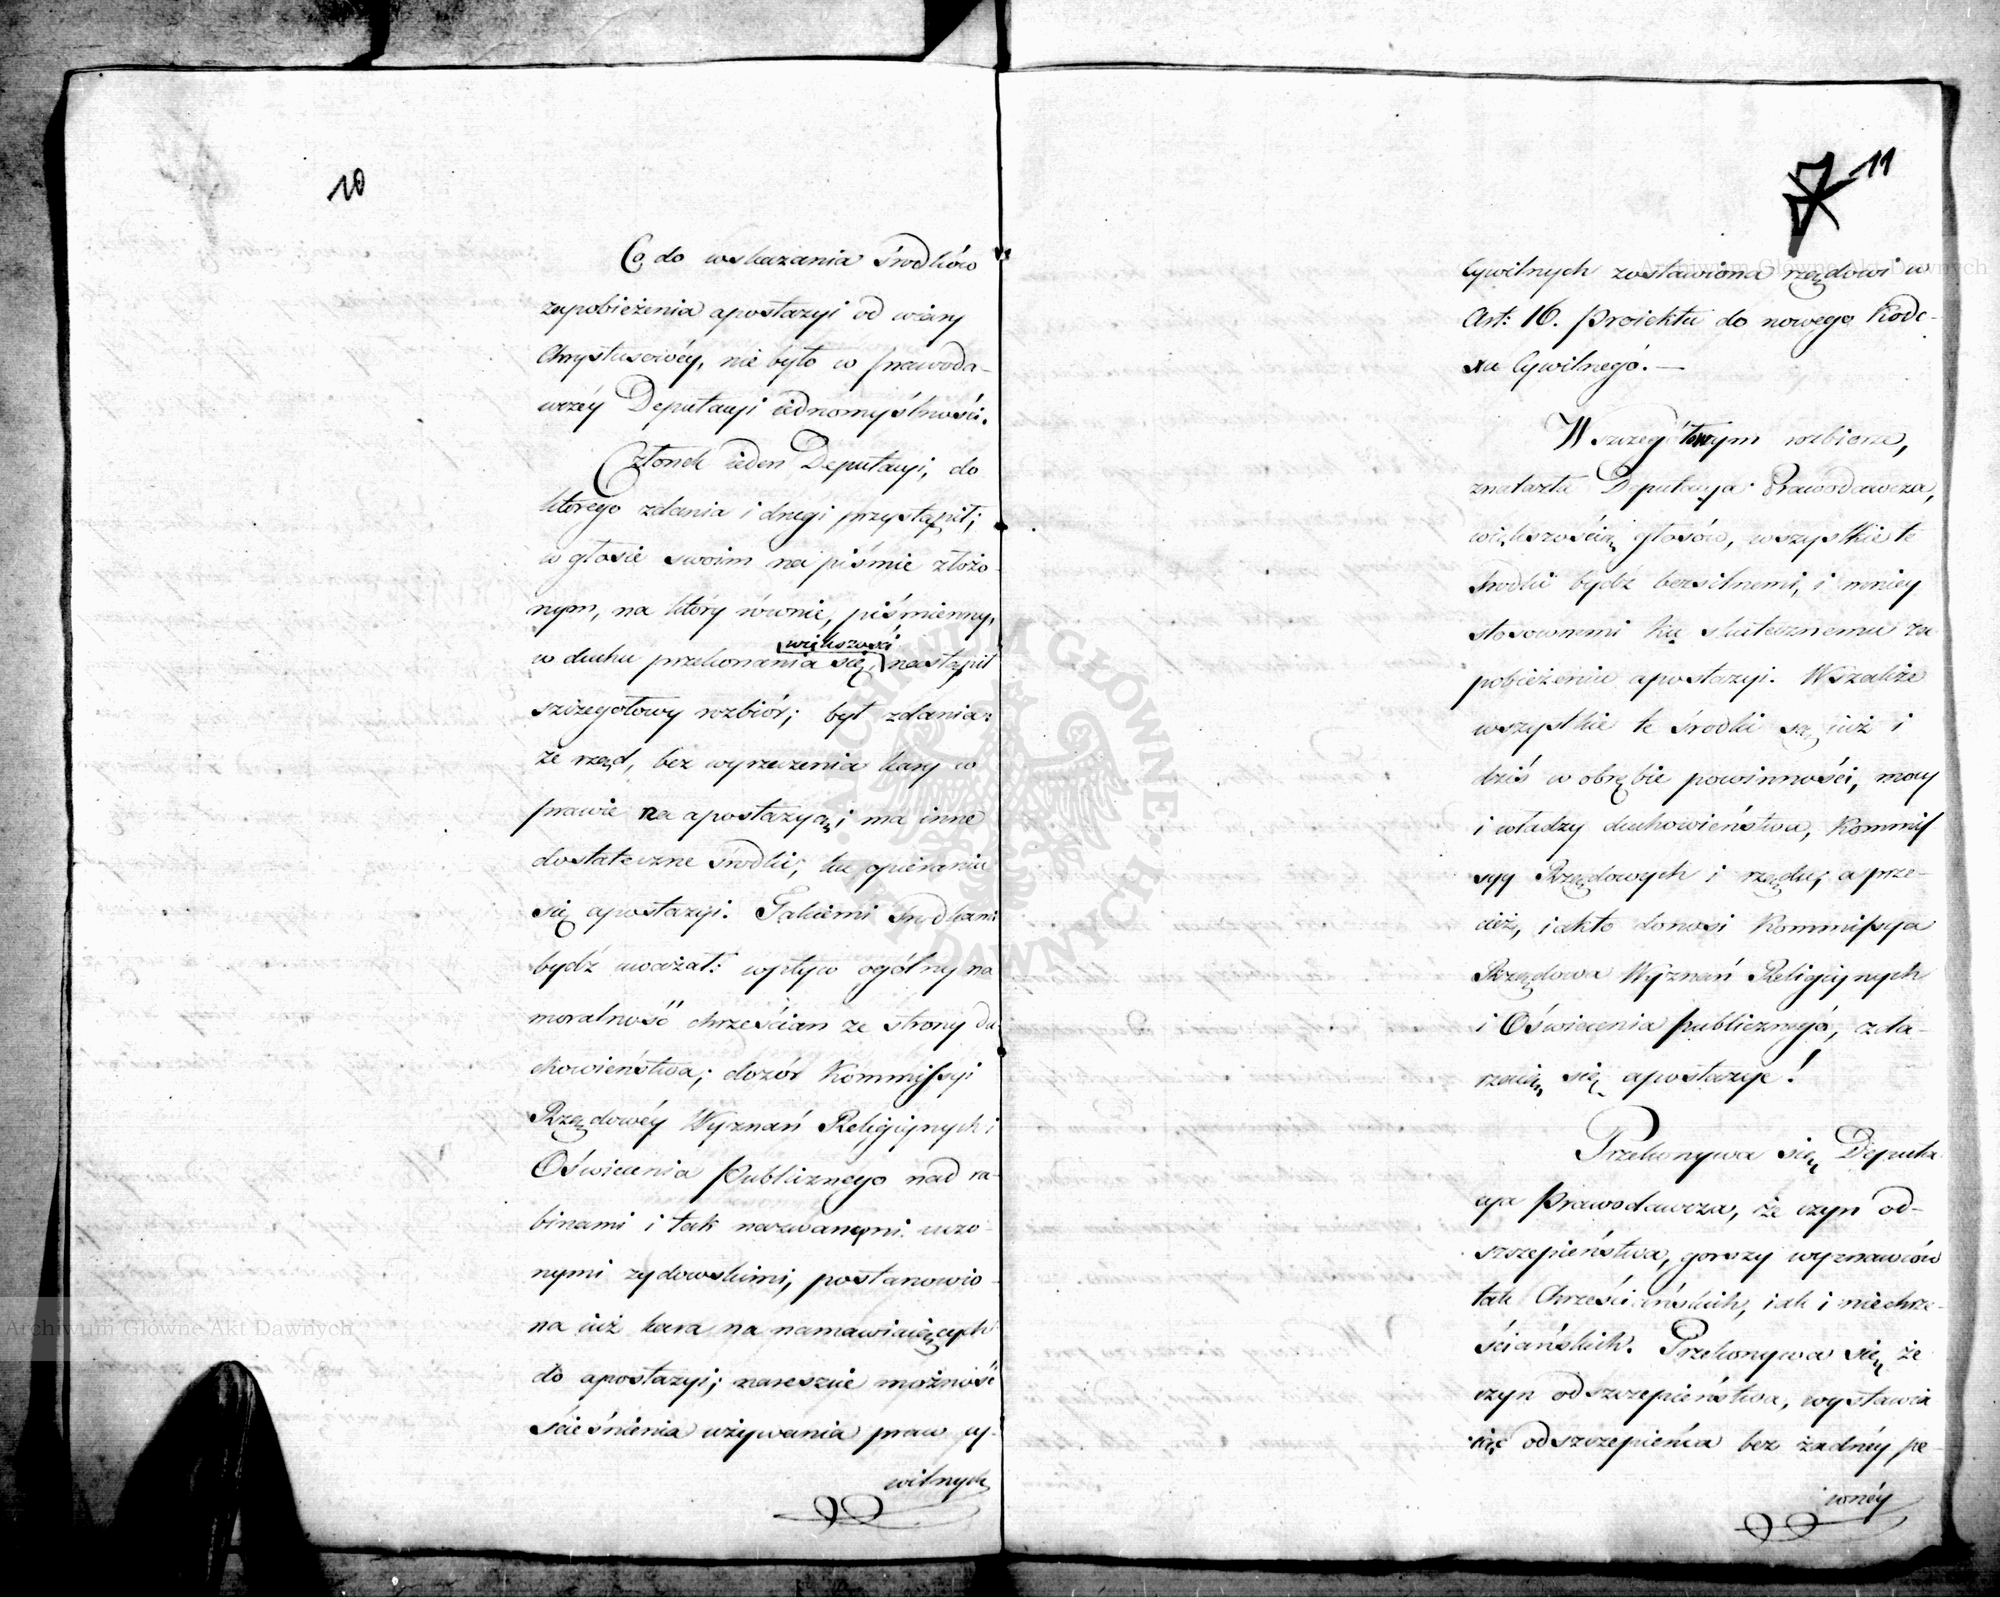 10
Co do wskazania środków
zapobieżenia apostazyi od wiary
Chrystusowéy, nie było w prawoda-
wczéy Deputacyi iednomyślności.
Członek ieden Deputacyi, do
którego zdania i drugi przystąpił;
w głosie swoim na piśmie złożo-
nym, na który równie, piśmienny,
większości
w duchu przekonania się, nastąpił
szczegółowy rozbiór; był zdania:
że rząd, bez wyrzeczenia kary w
prawie na apostazyą, ma inne
dostateczne środki, ku opieraniu
się apostazyi. Takiemi środkami
bydź uważał: wpływ ogólny na
moralność chrześcian ze strony du-
chowieństwa; dozór Kommissyi
Rządowéy Wyznań Religiynych i
Oświecenia Publicznego nad ra-
binami i tak nazwanymi uczo-
nymi żydowskimi, postanowio-
na iuż kara na namawiaiących
do apostazyi; nareszcie możność
ścieśnienia używania praw cy-
wilnych
11
Cywilnych zostawiona rządowi w
Art: 16. Proiektu do nowego Kode-
xu Cywilnego.—
W szczegółowym rozbiorze,
znalazła Deputacya Prawodawcza,
większością głosów, wszystkie te
środki bydź bezsilnemi, i mniey
stosownemi ku skutecznemu za-
pobieżeniu apostazyi. Wszakże
wszystkie te środki są iuż i
dziś w obrębie powinności, mocy
i władzy duchowieństwa, Kommis
syy Rządowych i rządu, a prze-
cież, iak to donosi Kommissya
Rządowa Wyznań Religiynych
i Oświecenia publicznego, zda-
rzaią się apostazye!
Przekonywa się Deputa-
cya Prawodawcza, że czyn od-
szczepieństwa, gorszy wyznawców
tak Chrześciańskich, iak i niechrze-
ściańskich. Przekonywa się że
czyn odszczepieństwa, wystawia
odszczepieńca bez żadnéy pe-
wnéy
Archiwum Główne Akt Dawnych
Archiwum Główne Akt Dawnych
ARCHIWUM GŁÓWNE AKT DAWNYCH